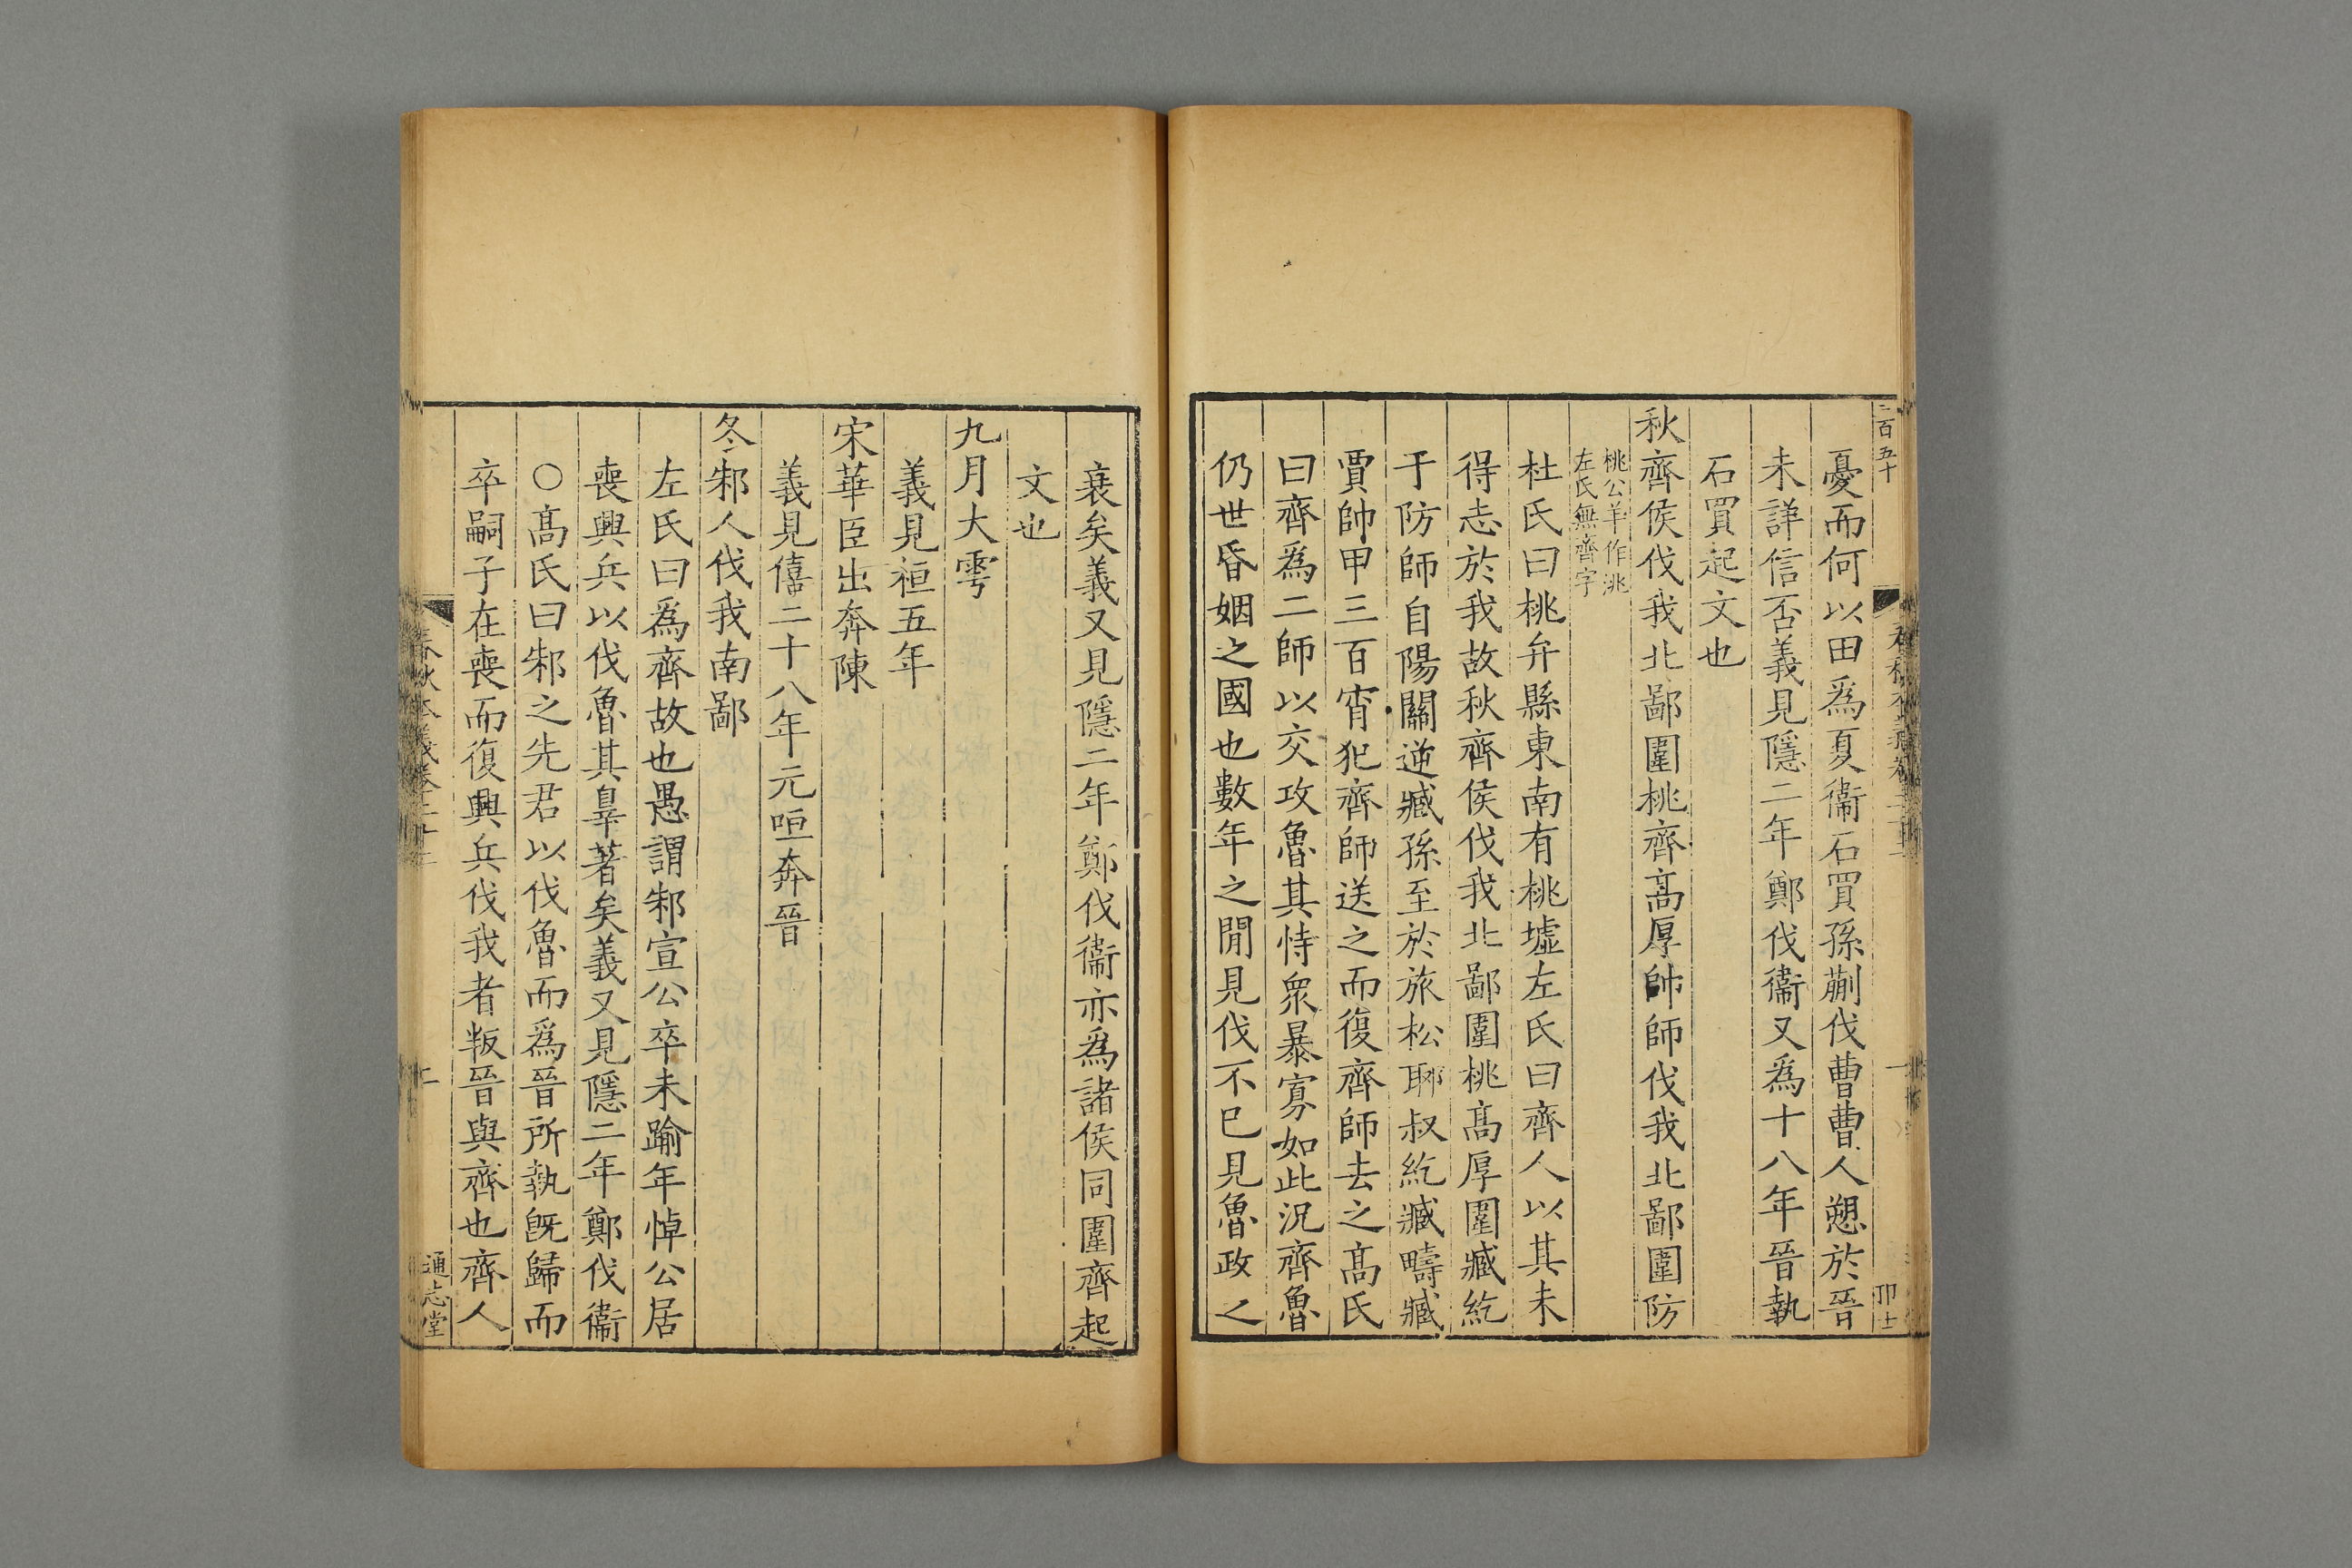 二百五十
憂而何以田爲夏衞石買孫蒯伐曹曹人愬於晉
未詳信否義見隱二年鄭伐衞又爲十八年晉執
石買起文也
秋齊侯伐我北鄙圍桃齊高厚帥師伐我北鄙圍防
桃公羊作洮
左氏無齊字
杜氏曰桃弁縣東南有桃墟左氏曰齊人以其未
得志於我故秋齊侯伐我北鄙圍桃髙厚圍臧紇
于防師自陽關逆臧孫至於旅松郰叔紇臧疇臧
賈帥甲三百宵犯齊師送之而復齊師去之髙氏
曰齊爲二師以交攻魯其恃衆暴寡如此況齊魯
仍世昏姻之國也數年之閒見伐不已見魯政之
衰矣義又見隱二年鄭伐衞亦爲諸侯同圍齊起
文也
九月大雩
義見桓五年
宋華臣出奔陳
義見僖二十八年元咺奔晉
冬邾人伐我南鄙
左氏曰爲齊故也愚謂邾宣公卒未踰年悼公居
喪興兵以伐魯其辠著矣義又見隱二年鄭伐衞
○髙氏曰邾之先君以伐魯而爲晉所執旣歸而
卒嗣子在喪而復興兵伐我者叛晉與齊也齊人
春秋本義卷二十二
通志堂